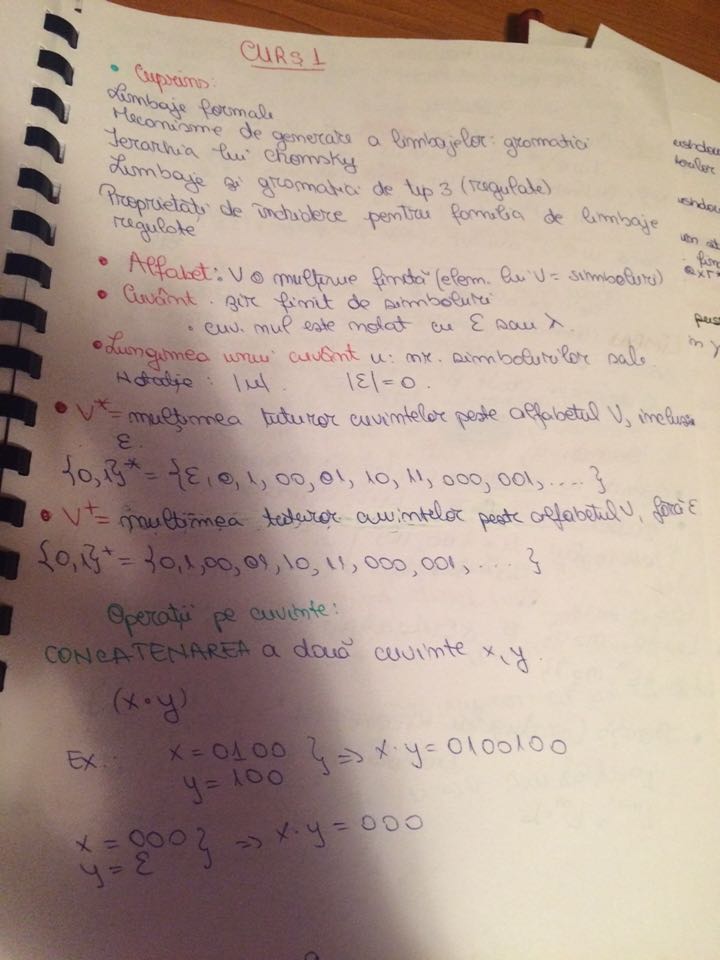 CURS 1
• Cuprins:
Limbaje formale
Mecanisme de generare a limbajelor: gramatici
Ierarhia lui Chomsky
Limbaje și gramatici de tip 3 (regulate)
Proprietăți de închidere pentru familia de limbaje
regulate
• Alfabet: V o mulțime finită (elem. lui V = simboluri)
• Cuvânt: șir finit de simboluri
• cuv. nul este notat cu ε sau λ.
• Lungimea unui cuvânt u: nr. simbolurilor sale.
Notație: |u|. |ε| = 0.
• V* = mulțimea tuturor cuvintelor peste alfabetul V, inclusiv
ε.
{0,1}* = {ε, 0, 1, 00, 01, 10, 11, 000, 001, ....}
• V+ = mulțimea tuturor cuvintelor peste alfabetul V, fără ε
{0,1}+ = {0, 1, 00, 01, 10, 11, 000, 001, ....}
Operații pe cuvinte:
CONCATENAREA a două cuvinte x, y.
(x·y)
EX.: x = 0100 } => x·y = 0100100
y = 100
x = 000 } => x·y = 000
y = ε